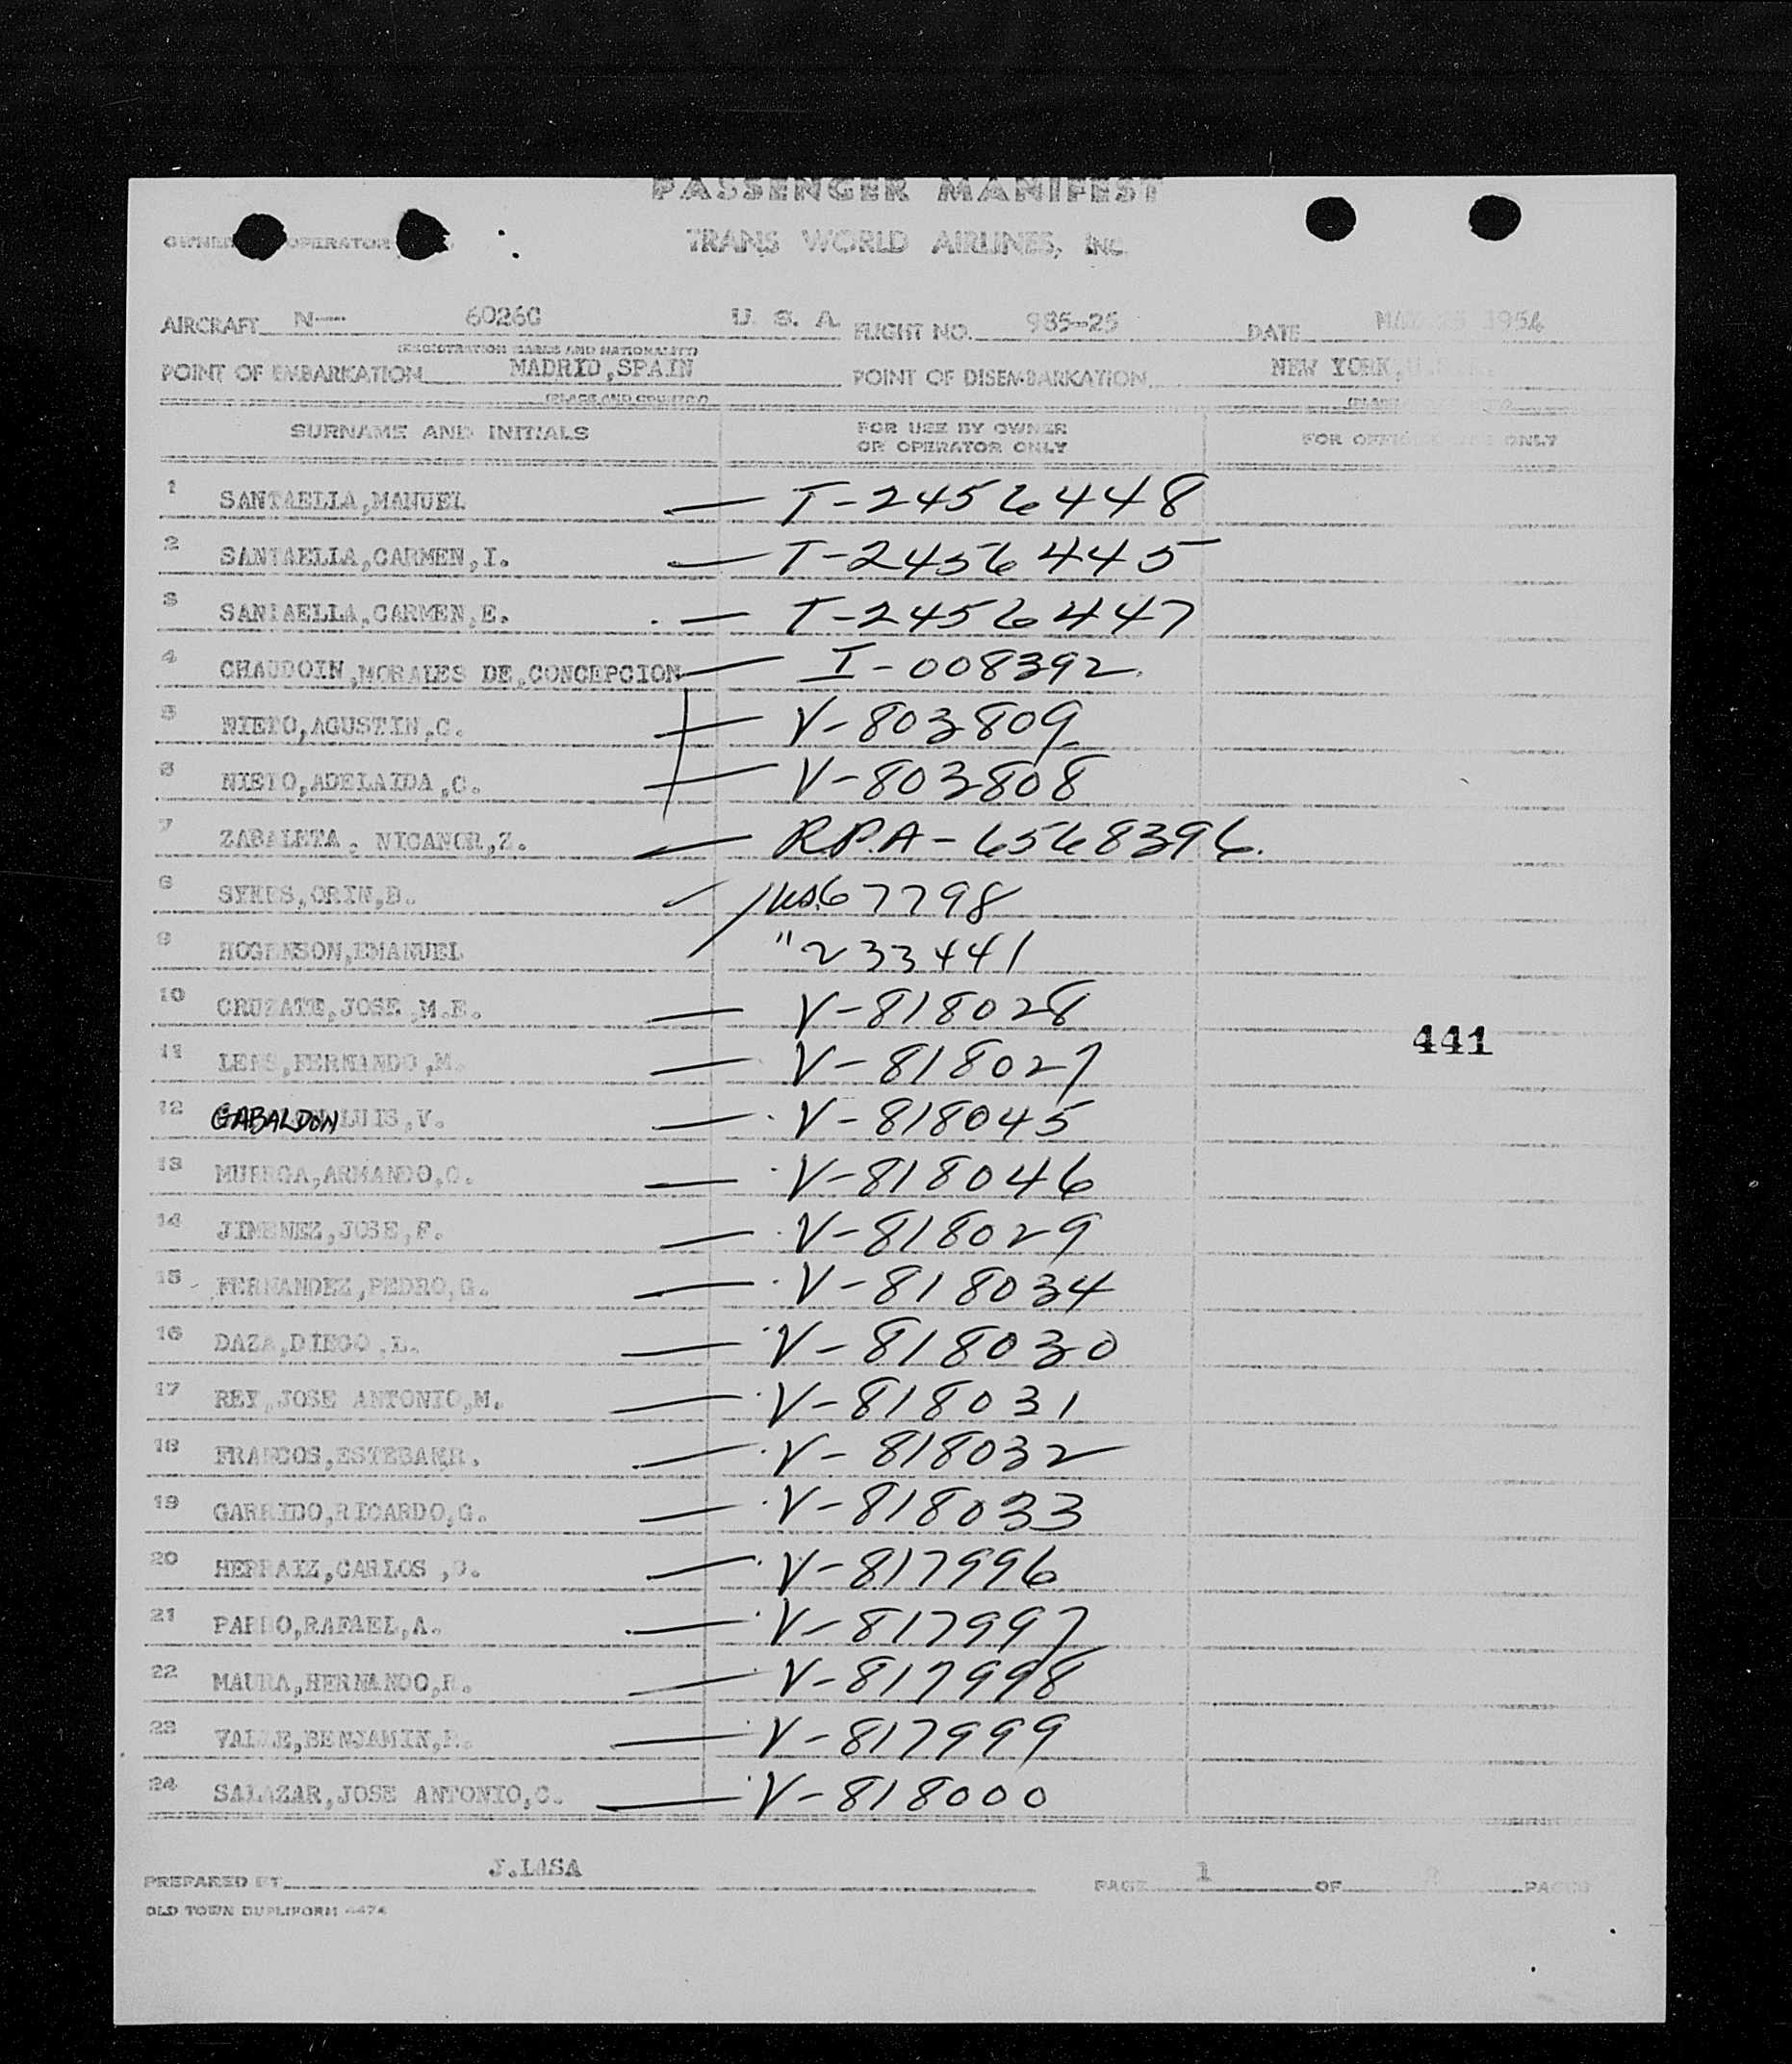 PASSENGER MANIFEST
OPERATOR
TRANS WORLD AIRLINES, INC
AIRCRAFT N— 6026C U. S. A. FLIGHT NO. 985-25 DATE 1954
(REGISTRATION MARKS AND NATIONALITY)
POINT OF EMBARKATION MADRID,SPAIN POINT OF DISEMBARKATION NEW YORK,
(PLACE AND COUNTRY)
SURNAME AND INITIALS FOR USE BY OWNER OR OPERATOR ONLY FOR OFFICIAL USE ONLY
1 SANTAELLA,MANUEL — T-2456448
2 SANTAELLA,CARMEN,I. — T-2456445
3 SANTAELLA,CARMEN,E. — T-2456447
4 CHAUDOIN,MORALES DE,CONCEPCION — I-008392
5 NIETO,AGUSTIN,C. — V-803809
6 NIETO,ADELAIDA,C. — V-803808
7 ZABALETA, NICANOR,Z. — RP.A-6568396.
8 SYKES,ORIN,B. 67798
9 HOGENSON,EMANUEL " 233441
10 CRUZATE,JOSE,M.E. — V-818028
11 FERNANDO,M. — V-818027
12 GABALDON LUIS,V. — V-818045
13 ARMANDO,O. — V-818046
14 JIMENEZ,JOSE,F. — V-818029
15 FERNANDEZ,PEDRO,G. — V-818034
16 DAZA,DIEGO,L. — V-818030
17 REY,JOSE ANTONIO,M. — V-818031
18 FRANCOS,ESTEBAN,R. — V-818032
19 GARRIDO,RICARDO,G. — V-818033
20 HERRAIZ,CARLOS — V-817996
21 PARDO,RAFAEL,A. — V-817997
22 MAURA,HERNANDO,R. — V-817998
23 BENJAMIN — V-817999
24 SALAZAR,JOSE ANTONIO,C. — V-818000
441
PREPARED BY J.LASA PAGE 1 OF PAGES
OLD TOWN DUPLIFORM 4474